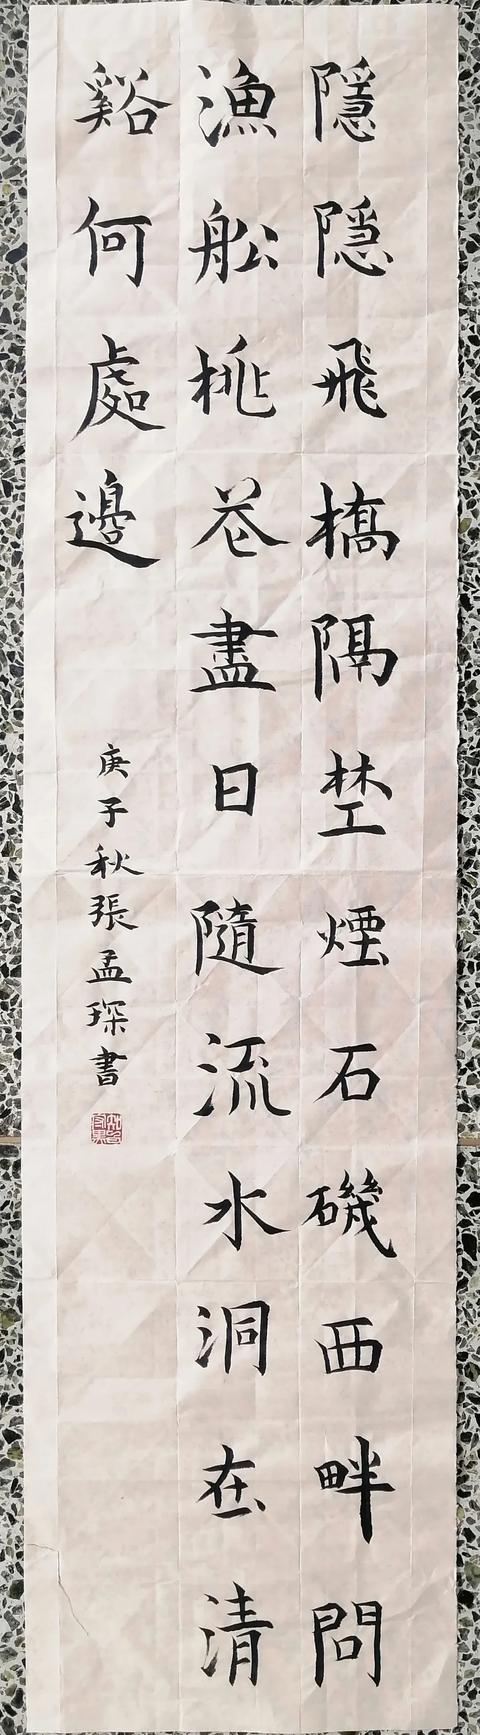 隱隱飛橋隔埜煙石磯西畔問
漁舩桃花盡日隨流水洞在清
谿何處邊
庚子秋張孟琛書